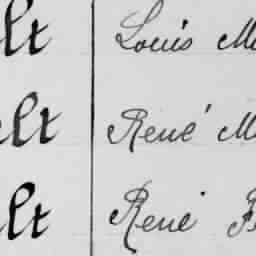 lt Louis M
lt René M
lt René F